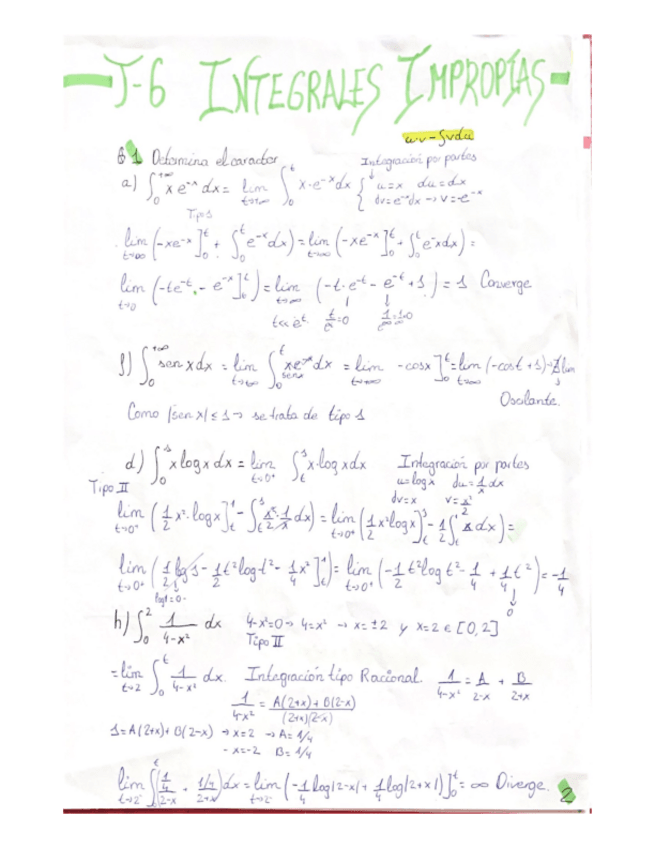 T-6 INTEGRALES IMPROPIAS
uv-∫vdu
1 Determina el caracter
Integración por partes
a) ∫₀^{+∞} x e^{-x} dx = lim_{t→+∞} ∫₀^t x·e^{-x}dx { u=x du=dx
dv=e^{-x}dx → v=-e^{-x}
Tipo 1
lim_{t→∞} (-xe^{-x}]₀^t + ∫₀^t e^{-x}dx) = lim_{t→∞} (-xe^{-x}]₀^t + ∫₀^t e^{-x}dx) =
lim_{t→0} (-te^{-t} - e^{-x}]₀^t) = lim_{t→∞} (-t·e^{-t} - e^{-t} + 1) = 1 Converge
t<<e^t. t/e^t=0 1/∞=0
f) ∫₀^{+∞} sen x dx = lim_{t→+∞} ∫₀^t dx = lim_{t→+∞} -cosx]₀^t = lim_{t→∞} (-cost+1) → ∄ lim
Oscilante.
Como |sen x| ≤ 1 → se trata de tipo 1
d) ∫₀^1 x log x dx = lim_{t→0⁺} ∫_t^1 x·log x dx Integración por partes
u=log x du=1/x dx
Tipo II
dv=x v=x²/2
lim_{t→0⁺} (1/2 x²·log x]_t^1 - ∫_t^1 x²/2·1/x dx) = lim_{t→0⁺} (1/2 x² log x]_t^1 - 1/2 ∫_t^1 x dx) =
lim_{t→0⁺} (1/2 log 1 - 1/2 t² log t² - 1/4 x²]_t^1) = lim_{t→0⁺} (-1/2 t² log t² - 1/4 + 1/4 t²) = -1/4
log 1=0
0
h) ∫₀^2 1/(4-x²) dx 4-x²=0 → 4=x² → x=±2 y x=2 ∈ [0,2]
Tipo II
= lim_{t→2} ∫₀^t 1/(4-x²) dx. Integración tipo Racional 1/(4-x²) = A/(2-x) + B/(2+x)
1/(4-x²) = A(2+x)+B(2-x)/(2+x)(2-x)
1=A(2+x)+B(2-x) → x=2 → A=1/4
- x=-2 B=1/4
lim_{t→2⁻} ∫₀^t (1/4/(2-x) + 1/4/(2+x)) dx = lim_{t→2⁻} (-1/4 log|2-x| + 1/4 log|2+x|)]₀^t = ∞ Diverge.
2